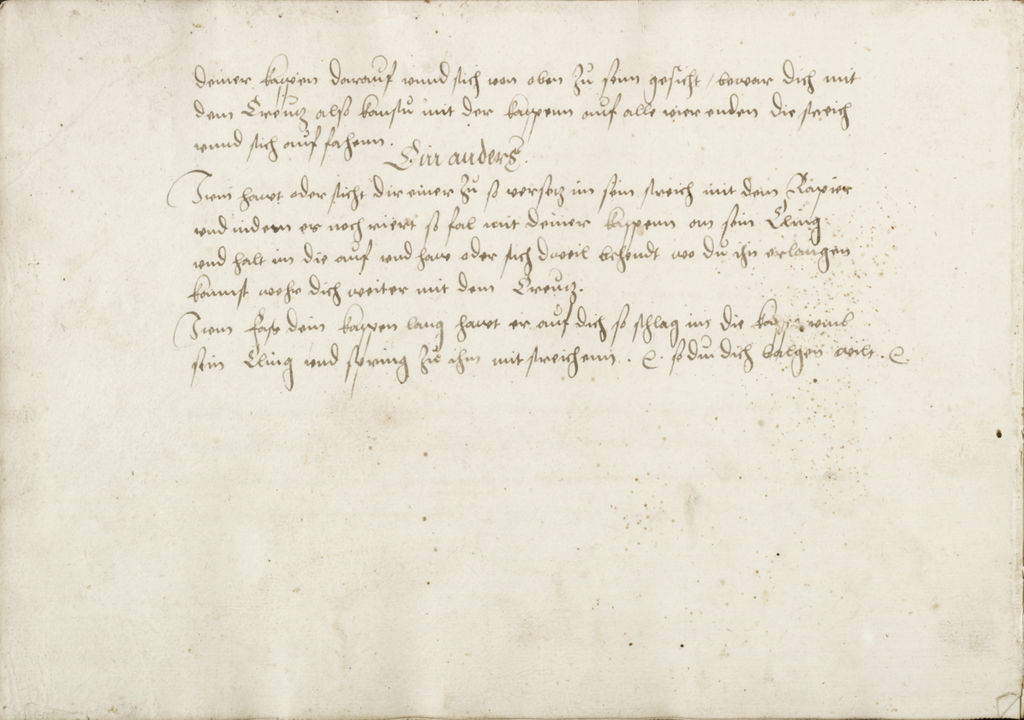 deiner kappen darauf unnd stich von oben zu seim gesicht / bewar dich mit
dem Creutz also kanstu mit der kappenn auf alle vier enden die streich
unnd stich auf fahenn.
Ein anders.
Item hawt oder sticht dir einer zu so versetz im sein streich mit dem Rapier
und indem er noch riert so fal mit deiner kappenn an sein Cling
und halt im die auf und haw oder stich dweil behendt wo du ihn erlangen
kannst wehr dich weiter mit dem Creutz.
Item fasse dein kappen lang hawt er auf dich so schlag im die kappe umb
sein Cling und spring zu ihm mit streichenn. so du dich balgen wilt.